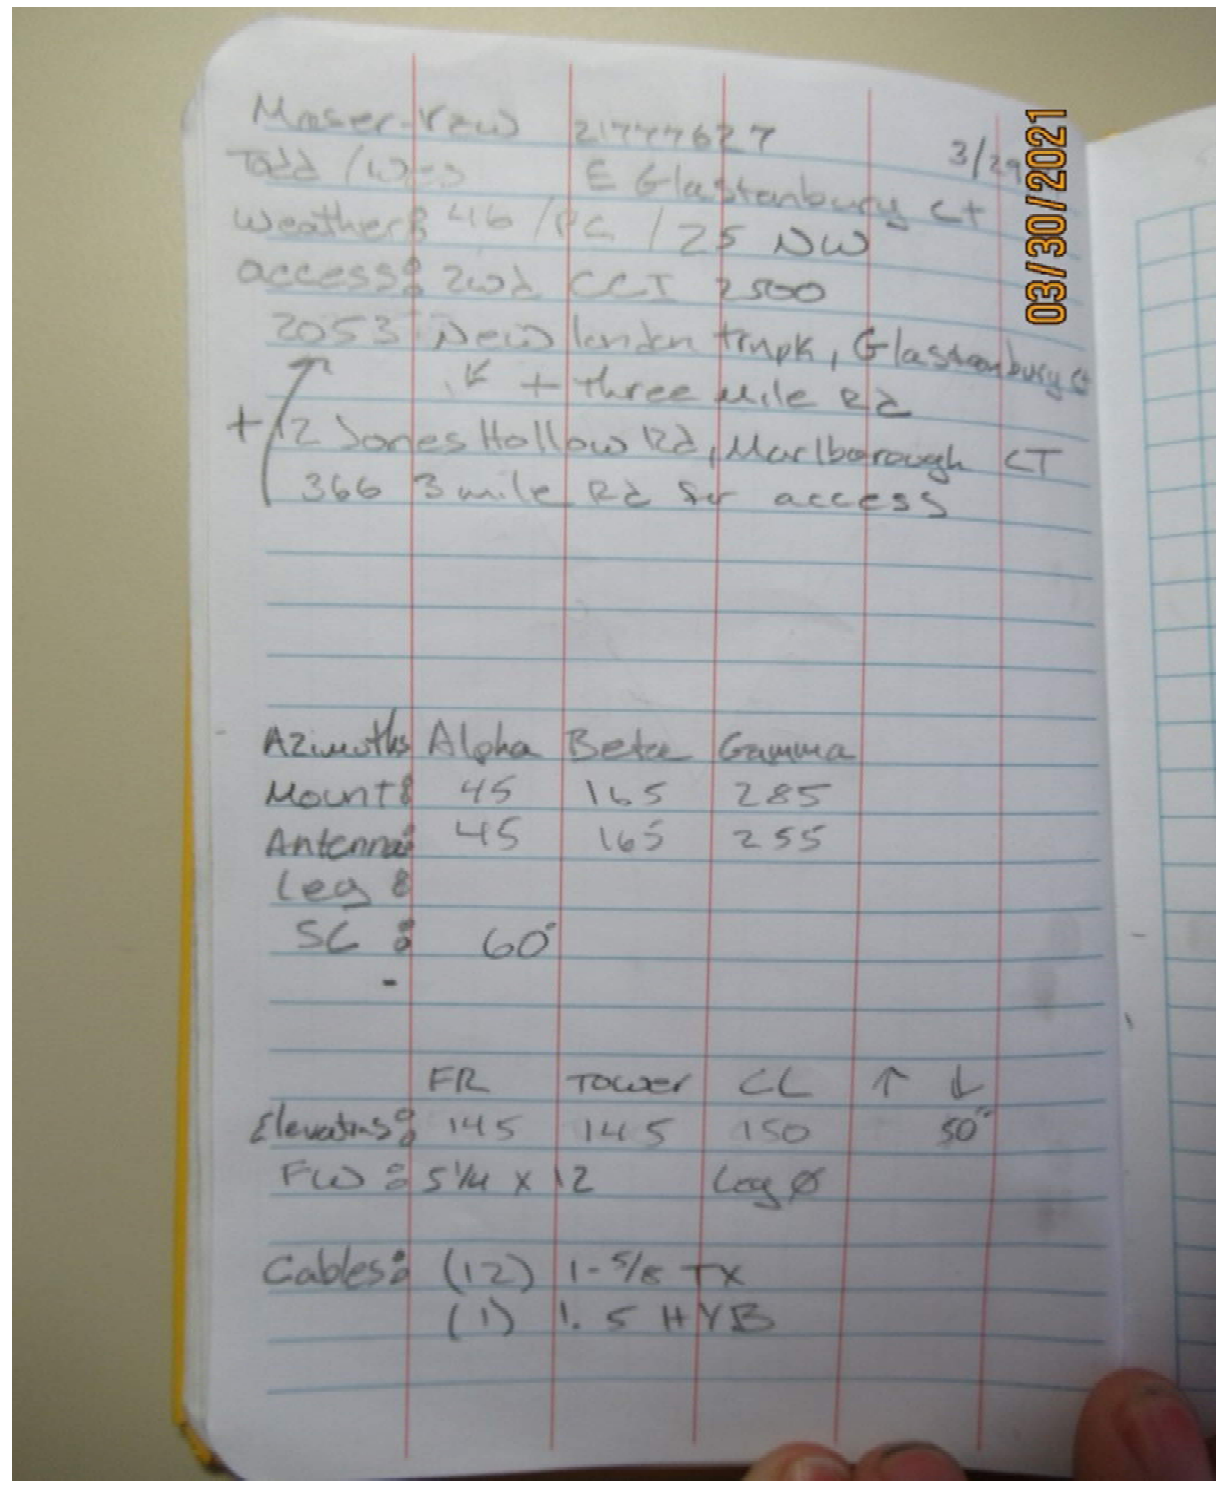 Maser-Vzw 21777627 3/29
Todd / Wes E Glastenbury Ct
Weather: 46 / PC / 25 NW
access: 2wd CCI 2500
2053 New london trnpk, Glastonbury Ct
+ three Mile Rd
+ 12 Jones Hollow Rd, Marlborough CT
366 3 mile Rd for access
Azimuths Alpha Beta Gamma
Mount: 45 165 285
Antenna: 45 165 255
Leg :
SC : 60°
-
FR Tower CL ↑ ↓
Elevations: 145 145 150 50"
FW : 5 1/4 x 12 Leg Ø
Cables: (12) 1-5/8 TX
(1) 1.5 HYB
03/30/2021